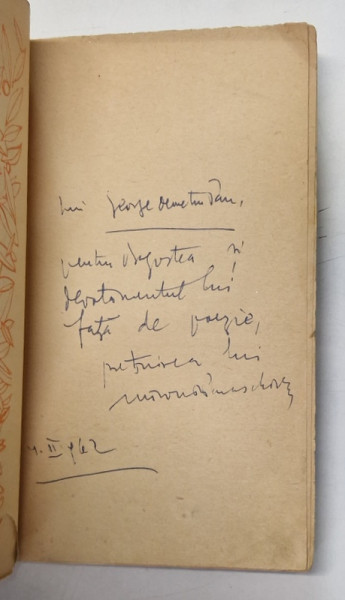 lui George Demetru Pan,
pentru dragostea și
devotamentul lui
față de poezie,
prețuirea lui
II 962